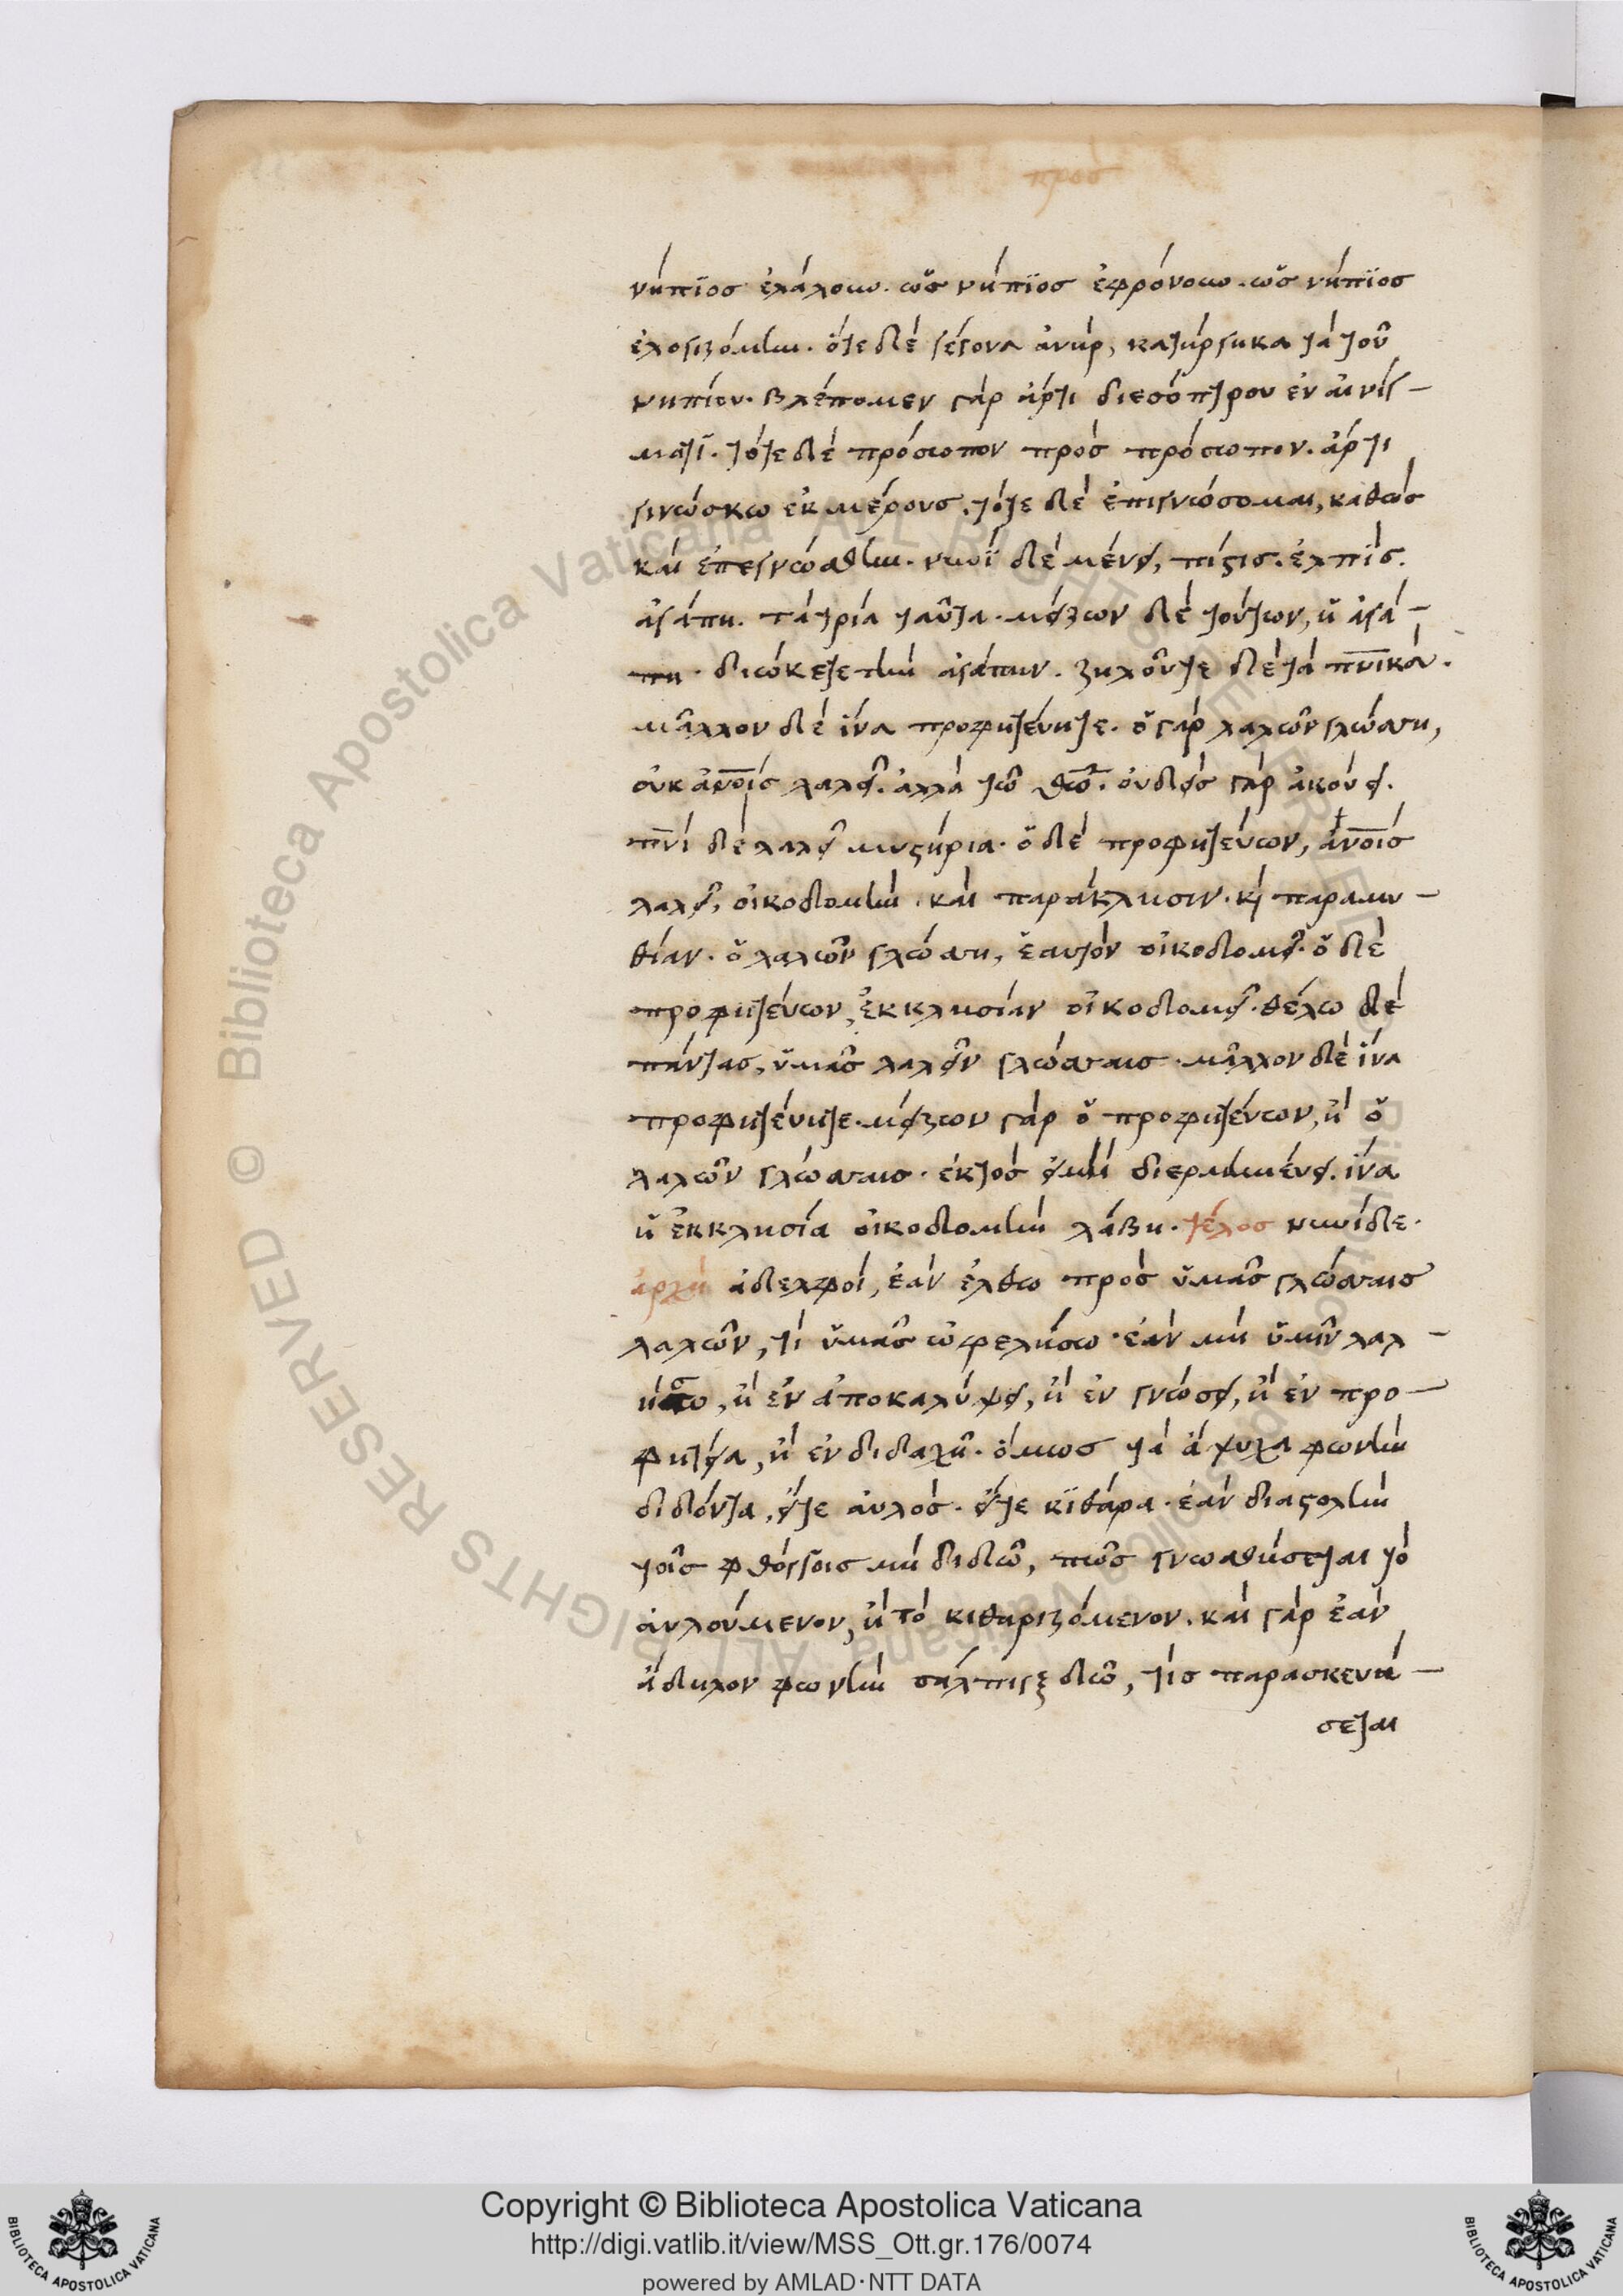 προσ
νήπϊοσ ἐλάλουν. ὡσ νήπϊοσ ἐφρόνουν. ὡσ νήπϊοσ
ἐλογιζόμην. ὅτε δὲ γέγονα ἀνὴρ, κατήργηκα τὰ τοῦ
νηπίου. βλέπομεν γὰρ ἄρτι διεσόπτρου ἐν αἰνίγ-
ματϊ. τότε δὲ πρόσωπον πρὸσ πρόσωπον. ἄρτι
γινώσκω ἐκ μέρουσ. τότε δὲ ἐπιγνώσομαι, καθὼσ
καὶ ἐπεγνώσθην. νυνὶ δὲ μένει, πίστισ. ἐλπὶσ.
ἀγάπη. τὰ τρία ταῦτα. μείζων δὲ τούτων, ἡ ἀγά-
πη. διώκετε τὴν ἀγάπην. ζηλοῦτε δὲ τὰ πν̅ικά.
μᾶλλον δὲ ἵνα προφητεύητε. ὁ γὰρ λαλῶν γλώσση,
οὐκ ἀν̅οισ λαλεῖ. ἀλλὰ τῶ θ̅ω. οὐδεὶσ γὰρ ἀκούει.
πν̅ι δὲ λαλεῖ μυστήρια. ὁ δὲ προφητεύων, ἀν̅οισ
λαλεῖ, οἰκοδομὴν. καὶ παράκλησιν. κ̀ παραμυ-
θίαν. ὁ λαλῶν γλώσση, ἑαυτὸν οἰκοδομεῖ. ὁ δὲ
προφητεύων, ἐκκλησίαν οἰκοδομεῖ. θέλω δὲ
πάντασ, ὑμᾶσ λαλεῖν γλώσσαισ. μᾶλλον δὲ ἵνα
προφητεύητε. μείζων γὰρ ὁ προφητεύων, ἢ ὁ
λαλῶν γλώσσαισ. ἐκτὸσ εἰμὴ διερμηνεύει. ἵνα
ἡ ἐκκλησία οἰκοδομὴν λάβη. τέλοσ νυνὶ δε.
ἀρχὴ ἀδελφοὶ, ἐὰν ἔλθω πρὸσ ὑμᾶσ γλώσσαισ
λαλῶν, τί ὑμᾶσ ὠφελήσω. ἐὰν μὴ ὑμῖν λαλ-
ήσω, ἢ ἐν ἀποκαλύψει, ἢ ἐν γνώσει, ἢ ἐν προ-
φητεία, ἢ ἐν διδαχῆ. ὅμωσ τὰ ἄψυχα φωνὴν
διδόντα, εἴτε αὐλὸσ. εἴτε κϊθάρα. ἐὰν διαστολὴν
τοῖσ φθόγγοισ μὴ διδῶ, πῶσ γνωσθήσεται τὸ
αὐλούμενον, ἢ τὸ κιθαριζόμενον. καὶ γὰρ ἐὰν
ἄδηλον φωνὴν σάλπιγξ δῶ, τίσ παρασκευά-
σεται
Copyright © Biblioteca Apostolica Vaticana
http://digi.vatlib.it/view/MSS_Ott.gr.176/0074
powered by AMLAD·NTT DATA
BIBLIOTECA APOSTOLICA VATICANA
BIBLIOTECA APOSTOLICA VATICANA
© Biblioteca Apostolica Vaticana ALL RIGHTS RESERVED